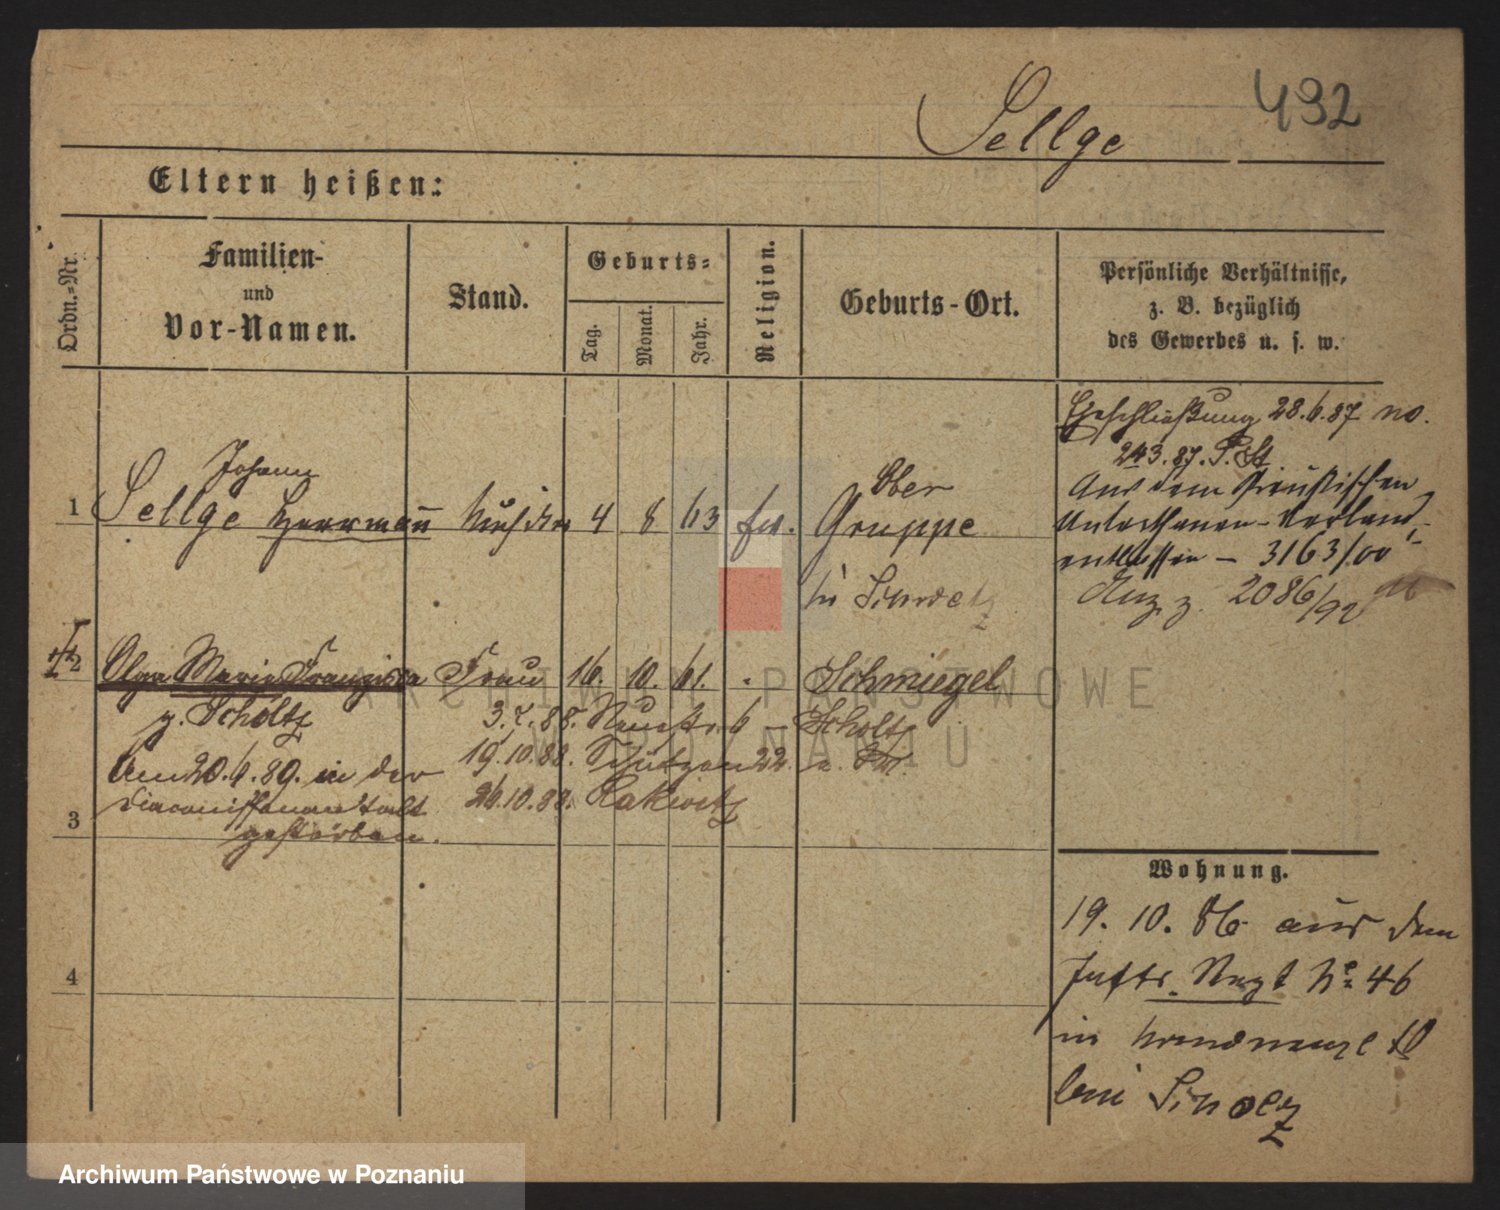 492
Sellge
Eltern heißen:
Ordn.-Nr.
Familien-
und
Vor-Namen.
Stand.
Geburts-
Tag.
Monat.
Jahr.
Religion.
Geburts-Ort.
Persönliche Verhältnisse,
z. B. bezüglich
des Gewerbes u. s. w.
Eheschließung 28.6.87 no.
243.87. P. St
Aus dem Preußischen
Unterthanen-Verband
entlassen – 3163/00
2086/92
Johann
Ober
1 Sellge Herrmann 4 8 63 ev. Gruppe
in
2 Olga Marie Franziska Frau 16. 10. 61. Schmiegel
g. Scholtz 3. 88. Neustr. 6 – Scholtz
Am 20. 6. 89. in der 19.10.88. Schützen 22.
Diaconissenanstalt 24.10.88. Rakwitz
3 gestorben.
4
Wohnung.
19. 10. 86 aus dem
Inftr. Regt No 46
in
bei
ARCHIWUM PAŃSTWOWE
W POZNANIU
Archiwum Państwowe w Poznaniu